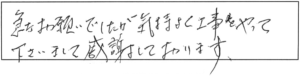 急なお願いでしたが気持よく工事をやって
下さいまして感謝しております。